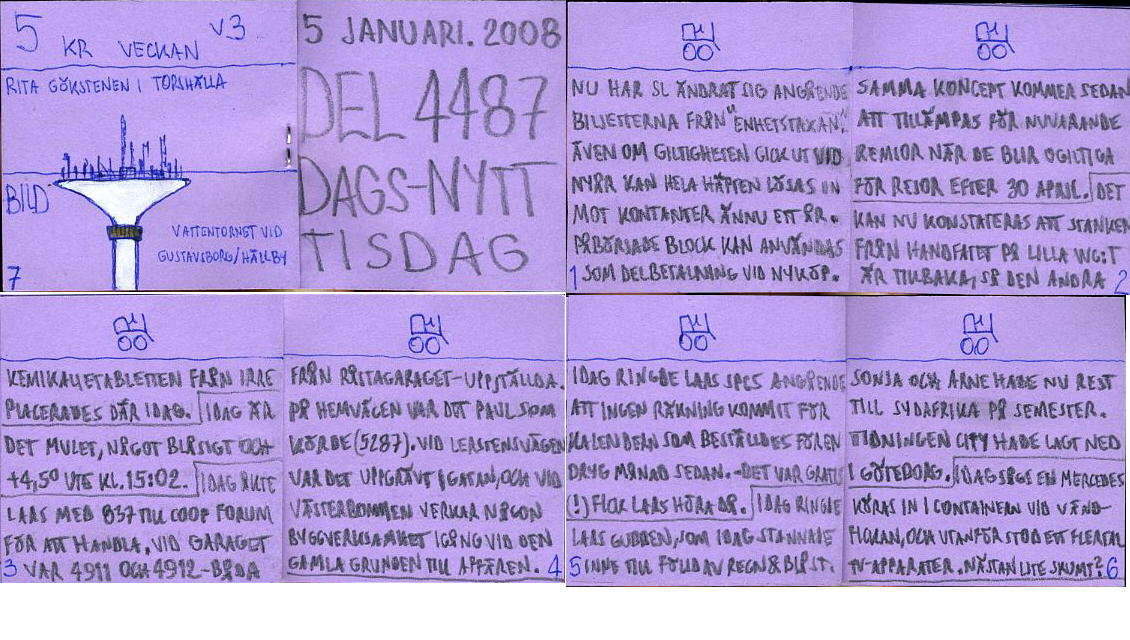 5 KR VECKAN V.3
RITA GÖKSTENEN I TORSHÄLLA
BILD
VATTENTORNET VID
GUSTAVSBORG/HÄLLBY
7
5 JANUARI. 2008
DEL 4487
DAGS-NYTT
TISDAG
NU HAR SL ÄNDRAT SIG ANGÅENDE
BILJETTERNA FRÅN "ENHETSTAXAN".
ÄVEN OM GILTIGHETEN GICK UT VID
NYÅR KAN HELA HÄFTEN LÖSAS IN
MOT KONTANTER ÄNNU ETT ÅR.
PÅBÖRJADE BLOCK KAN ANVÄNDAS
1 SOM DELBETALNING VID NYKÖP.
SAMMA KONCEPT KOMMER SEDAN
ATT TILLÄMPAS FÖR NUVARANDE
REMSOR NÄR DE BLIR OGILTIGA
FÖR RESOR EFTER 30 APRIL. DET
KAN NU KONSTATERAS ATT STANKEN
FRÅN HANDFATET PÅ LILLA WC:T
ÄR TILLBAKA, SÅ DEN ANDRA 2
KEMIKALIETABLETTEN FRÅN IRRE
PLACERADES DÄR IDAG. IDAG ÄR
DET MULET, NÅGOT BLÅSIGT OCH
+4,5° UTE KL.15:02. IDAG ÅKTE
LARS MED 837 TILL COOP FORUM
FÖR ATT HANDLA, VID GARAGET
3 VAR 4911 OCH 4912-BÅDA
FRÅN RÅSTAGARAGET-UPPSTÄLLDA.
PÅ HEMVÄGEN VAR DET PAUL SOM
KÖRDE (5287). VID LERSTENSVÄGEN
VAR DET UPPGRÄVT I GATAN, OCH VID
VÄSTERBOMMEN VERKAR NÅGON
BYGGVERKSAMHET IGÅNG VID DEN
GAMLA GRUNDEN TILL AFFÄREN. 4
IDAG RINGDE LARS SPCS ANGÅENDE
ATT INGEN RÄKNING KOMMIT FÖR
KALENDERN SOM BESTÄLLDES FÖR EN
DRYG MÅNAD SEDAN. -DET VAR GRATIS
(!) FICK LARS HÖRA DÅ. IDAG RINGDE
LARS GUBBEN, SOM IDAG STANNADE
5 INNE TILL FÖLJD AV REGN & BLÅST.
SONJA OCH ARNE HADE NU REST
TILL SYDAFRIKA PÅ SEMESTER.
TIDNINGEN CITY HADE LAGT NED
I GÖTEBORG. IDAG SÅGS EN MERCEDES
KÖRAS IN I CONTAINERN VID VÄND-
PLAN, OCH UTANFÖR STOD ETT FLERTAL
TV-APPARATER. NÄSTAN LITE SKUMT? 6